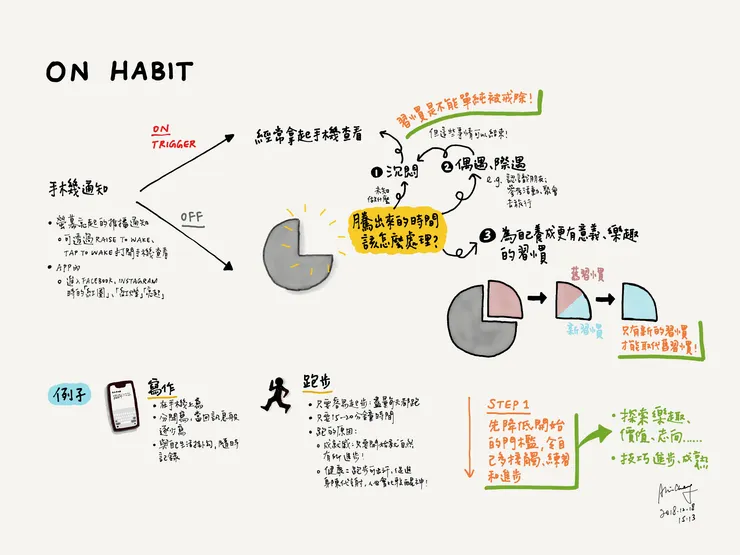 ON HABIT
手機通知
• 螢幕亮起的推播通知
◦ 可透過 RAISE TO WAKE、
TAP TO WAKE 打開手機查看
• APP內
◦ 進入FACEBOOK, INSTAGRAM
時的「紅圈」、「紅燈」「亮起」
ON
TRIGGER
OFF
經常拿起手機查看
騰出來的時間
該怎麼處理?
習慣是不能單純被戒除!
但這些事情可以結束!
❶ 沉悶
未知
做什麼
❷ 偶遇、際遇
e.g. 認識新朋友;
參與活動、聚會
去旅行
❸ 為自己養成更有意義、樂趣
的習慣
舊習慣
新習慣
只有新的習慣
才能取代舊習慣!
例子
寫作
• 在手機上寫
• 分開寫,當回訊息般
逐步寫
• 與自己生活掛勾,隨時
記錄
跑步
• 只要養成起步;盡量每天都跑
• 只要15-20分鐘時間
• 跑的原因:
◦ 成就感:只要開始就自然
有所進步!
◦ 健康:跑步可出汗,促進
身陳代謝,人也會比較醒神!
STEP 1
先降低開始
的門檻,令自
己多接觸、練習
和進步
• 探索樂趣、
價值、志向......
• 技巧進步、成熟
2018.12.18
15:13